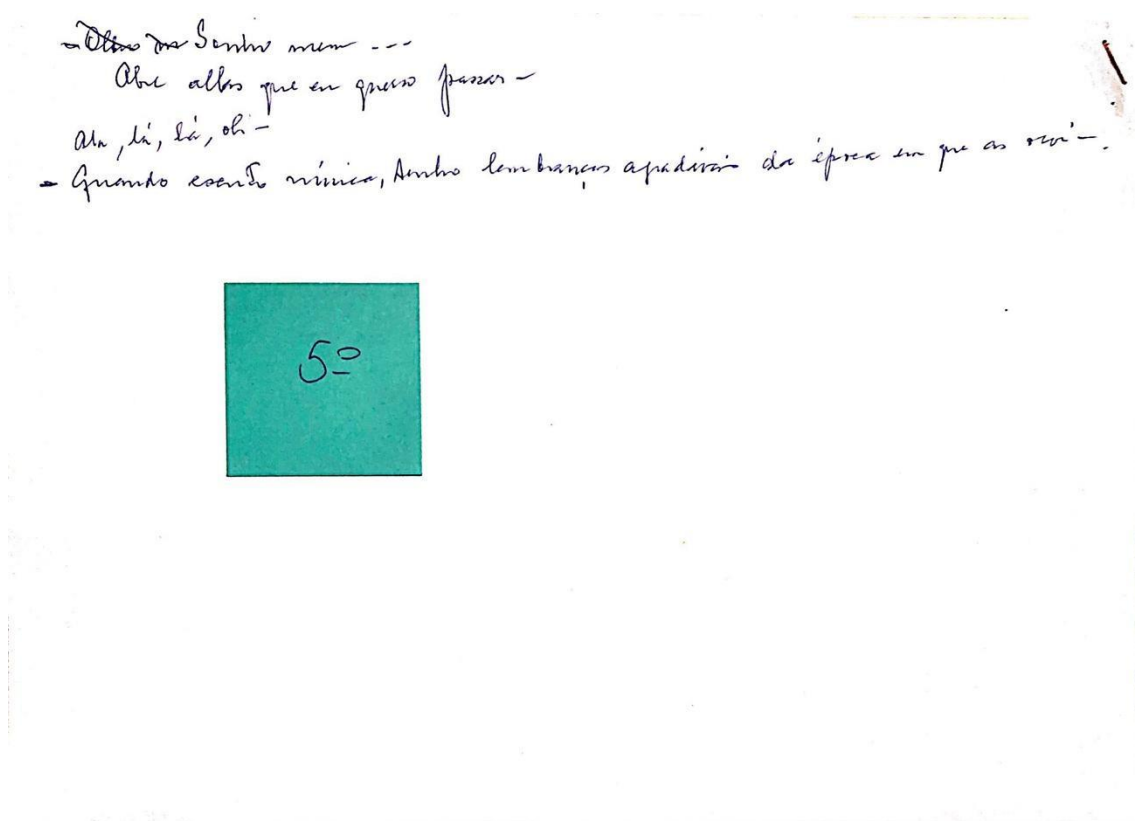 Sonho meu ---
Abre allas que eu quero passar -
Ala, lá, lá, oh -
- Quando escuto música, tenho lembranças agradáveis da época em que as ouvi -.
5º